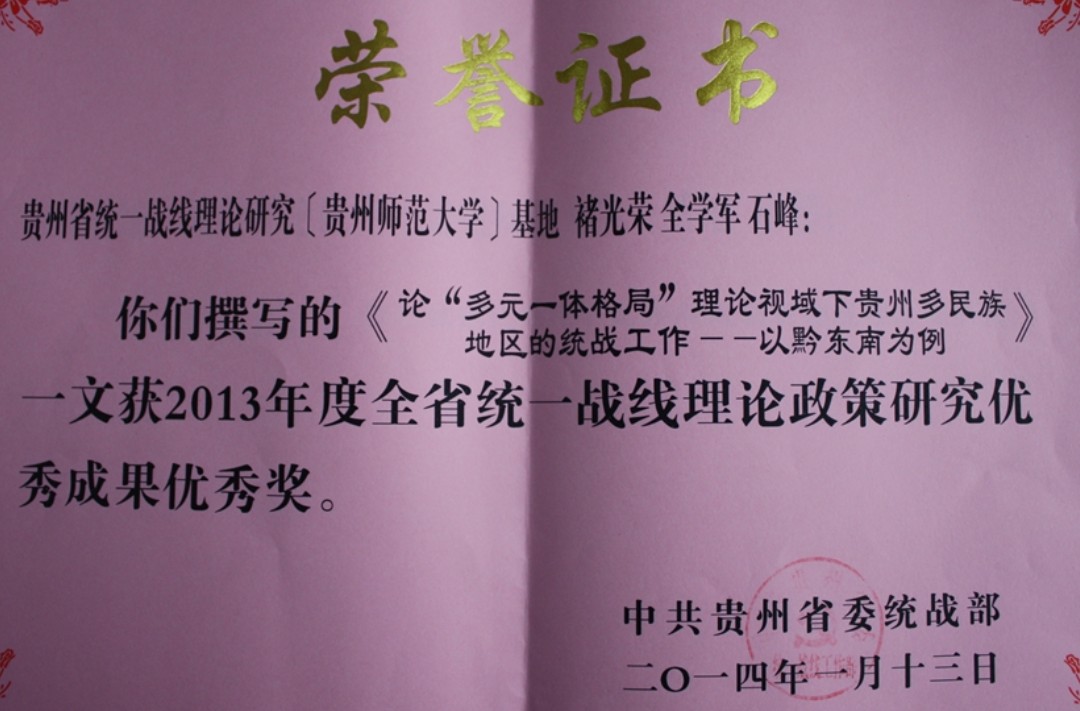 荣誉证书
贵州省统一战线理论研究〔贵州师范大学〕基地 褚光荣 全学军 石峰:
你们撰写的《论“多元一体格局”理论视域下贵州多民族
地区的统战工作－－以黔东南为例》
一文获2013年度全省统一战线理论政策研究优
秀成果优秀奖。
中共贵州省委统战部
二〇一四年一月十三日